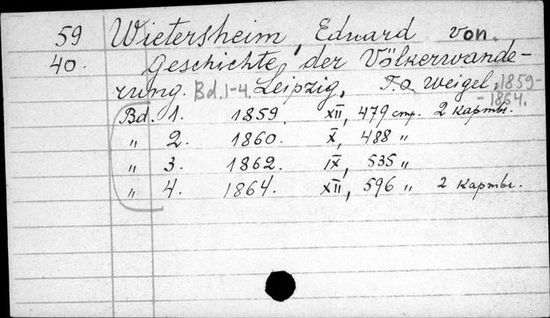 59 Wietersheim, Eduard von.
40. Geschichte der Völkerwande-
rung. Bd. 1-4. Leipzig, T. O. Weigel, 1859-
-1864.
Bd. 1. 1859. XII, 479 стр. 2 карты.
„ 2. 1860. X, 488 „
„ 3. 1862. IX, 535 „
„ 4. 1864. XII, 596 „ 2 карты.